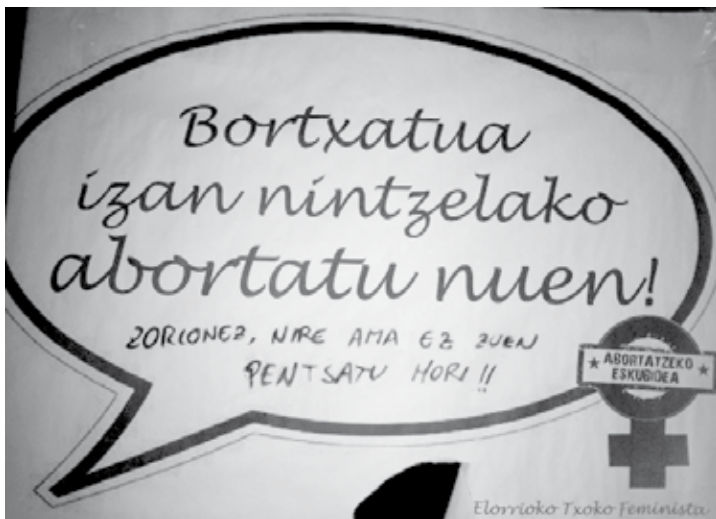 Bortxatua
izan nintzelako
abortatu nuen!
ZORIONEZ, NIRE AMA EZ ZUEN
PENTSATU HORI !!
★ ABORTATZEKO ★
ESKUBIDEA
Elorrioko Txoko Feminista